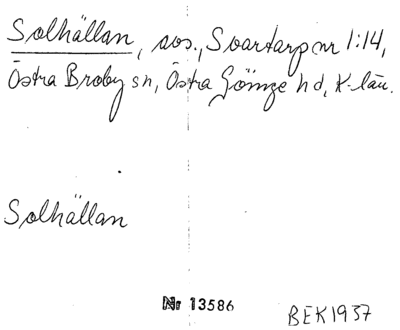 Solhällan, avs., Svartarp nr 1:14,
Östra Broby sn, Östra Göinge hd, K-län.
Solhällan
Nr 13586
BEK1937